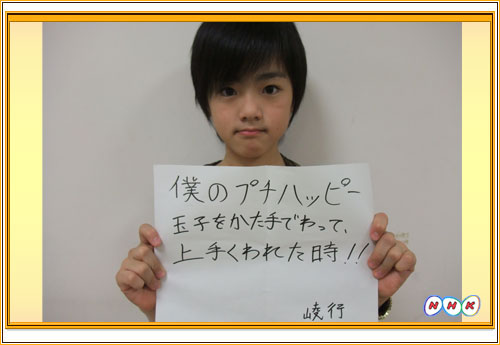 僕のプチハッピー
玉子をかた手でわって、
上手くわれた時!!
崚行
NHK